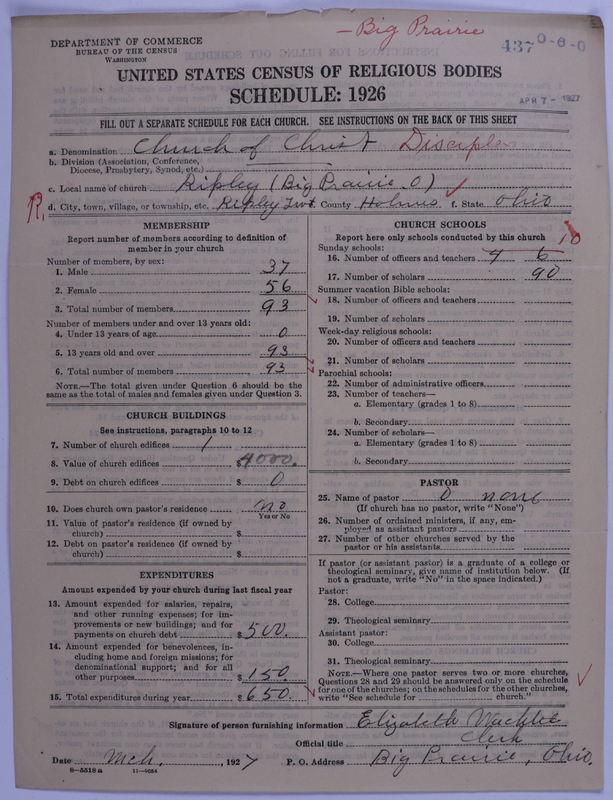 — Big Prairie
437 0-6-0
DEPARTMENT OF COMMERCE
BUREAU OF THE CENSUS
WASHINGTON
APR 7 - 1927
UNITED STATES CENSUS OF RELIGIOUS BODIES
SCHEDULE: 1926
FILL OUT A SEPARATE SCHEDULE FOR EACH CHURCH. SEE INSTRUCTIONS ON THE BACK OF THIS SHEET
a. Denomination Church of Christ Disciples
b. Division (Association, Conference,
Diocese, Presbytery, Synod, etc.)
c. Local name of church Ripley (Big Prairie O)
d. City, town, village, or township, etc. Ripley Twt. County Holmes f. State Ohio
MEMBERSHIP
Report number of members according to definition of
member in your church
Number of members, by sex:
1. Male 37
2. Female 56
3. Total number of members 93
Number of members under and over 13 years old:
4. Under 13 years of age 0
5. 13 years old and over 93
6. Total number of members 93
NOTE.—The total given under Question 6 should be the
same as the total of males and females given under Question 3.
CHURCH BUILDINGS
See instructions, paragraphs 10 to 12
7. Number of church edifices 1
8. Value of church edifices $4000.
9. Debt on church edifices $ 0
10. Does church own pastor's residence? no
Yes or No
11. Value of pastor's residence (if owned by
church) $
12. Debt on pastor's residence (if owned by
church) $
EXPENDITURES
Amount expended by your church during last fiscal year
13. Amount expended for salaries, repairs,
and other running expenses; for im-
provements or new buildings; and for
payments on church debt $500.
14. Amount expended for benevolences, in-
cluding home and foreign missions; for
denominational support; and for all
other purposes $150.
15. Total expenditures during year $650.
CHURCH SCHOOLS
Report here only schools conducted by this church
10
Sunday schools:
16. Number of officers and teachers 4 6
17. Number of scholars 90
Summer vacation Bible schools:
18. Number of officers and teachers
19. Number of scholars
Week-day religious schools:
20. Number of officers and teachers
21. Number of scholars
Parochial schools:
22. Number of administrative officers
23. Number of teachers—
a. Elementary (grades 1 to 8)
b. Secondary
24. Number of scholars—
a. Elementary (grades 1 to 8)
b. Secondary
PASTOR
25. Name of pastor 0 none
(If church has no pastor, write "None")
26. Number of ordained ministers, if any, em-
ployed as assistant pastors
27. Number of other churches served by the
pastor or his assistants
If pastor (or assistant pastor) is a graduate of a college or
theological seminary, give name of institution below. (If
not a graduate, write "No" in the space indicated.)
Pastor:
28. College
29. Theological seminary
Assistant pastor:
30. College
31. Theological seminary
NOTE.—Where one pastor serves two or more churches,
Questions 28 and 29 should be answered only on the schedule
for one of the churches; on the schedules for the other churches,
write "See schedule for ---- church."
Signature of person furnishing information Elizabeth
Official title Clerk
Date Mch. , 1927 P. O. Address Big Prairie, Ohio.
8-5518 a 11-9084